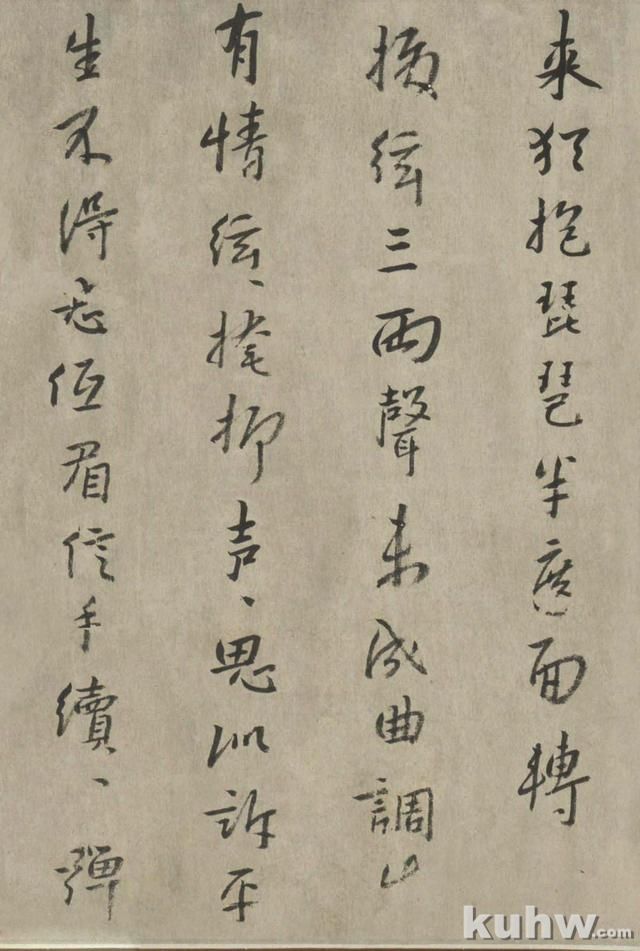 来犹抱琵琶半遮面轉
絃三兩聲未成曲調
有情絃、掩抑声、思似訴平
生不得志低眉信手續、彈
kuhw.com